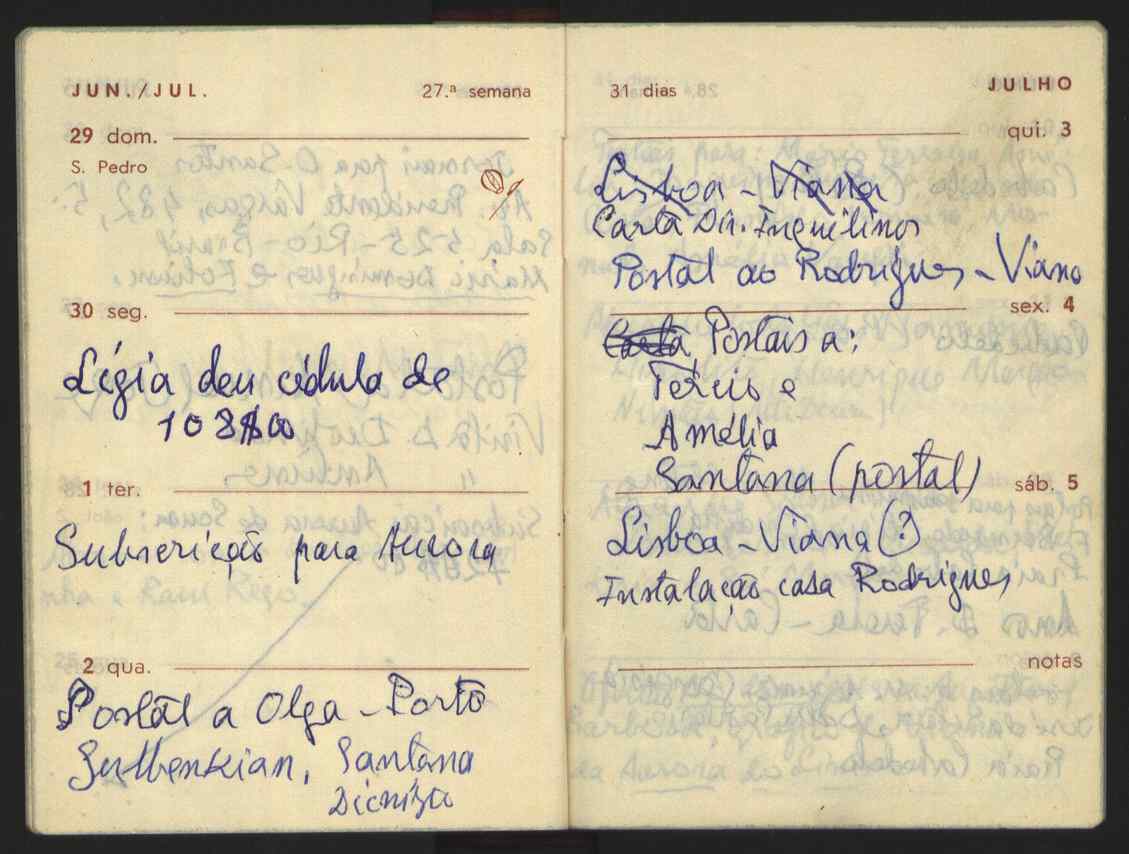 JUN./JUL. 27.ª semana
29 dom.
S. Pedro
30 seg.
Légia deu cédula de
108$00
1 ter.
Subscrição para Aurora
2 qua.
Postal a Olga - Porto
Gulbenkian, Santana
Dionísio
31 dias JULHO
qui. 3
Lisboa - Viana
Carta Dir. Inquilinos
Postal ao Rodrigues - Viana
sex. 4
Carta Postais a:
e
Amélia
Santana (postal)
sáb. 5
Lisboa - Viana (?)
Instalação casa Rodrigues
notas